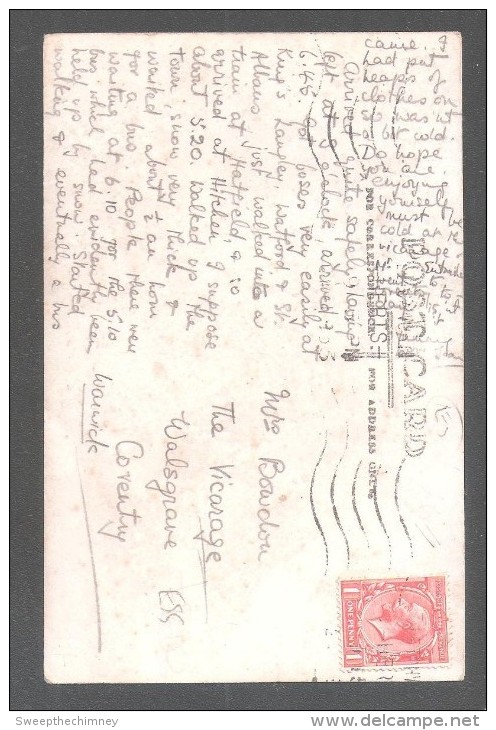 POST CARD
FOR CORRESPONDENCE.
FOR ADDRESS ONLY.
Arrived quite safely, having
left at 2 o'clock, arrived
6.45. Got buses very easily at
King's Langley, Watford & St.
Albans, just walked into a
train at Hatfield & so
arrived at Hitchin, I suppose
about 5.20. Walked up the
town, snow very thick &
waited about ½ an hour
for a bus. People there were
waiting at 6.10 for the 5.10
bus which had evidently been
held up by snow. Started
walking & eventually a bus
came. I
had put
heaps of
clothes on
so wasn't
a bit cold.
Do hope
you are
enjoying
yourself
must be
cold at the
vicarage.
Mrs Bowdon
The Vicarage
Walsgrave
Coventry
Warwick
ONE PENNY
Sweepthechimney